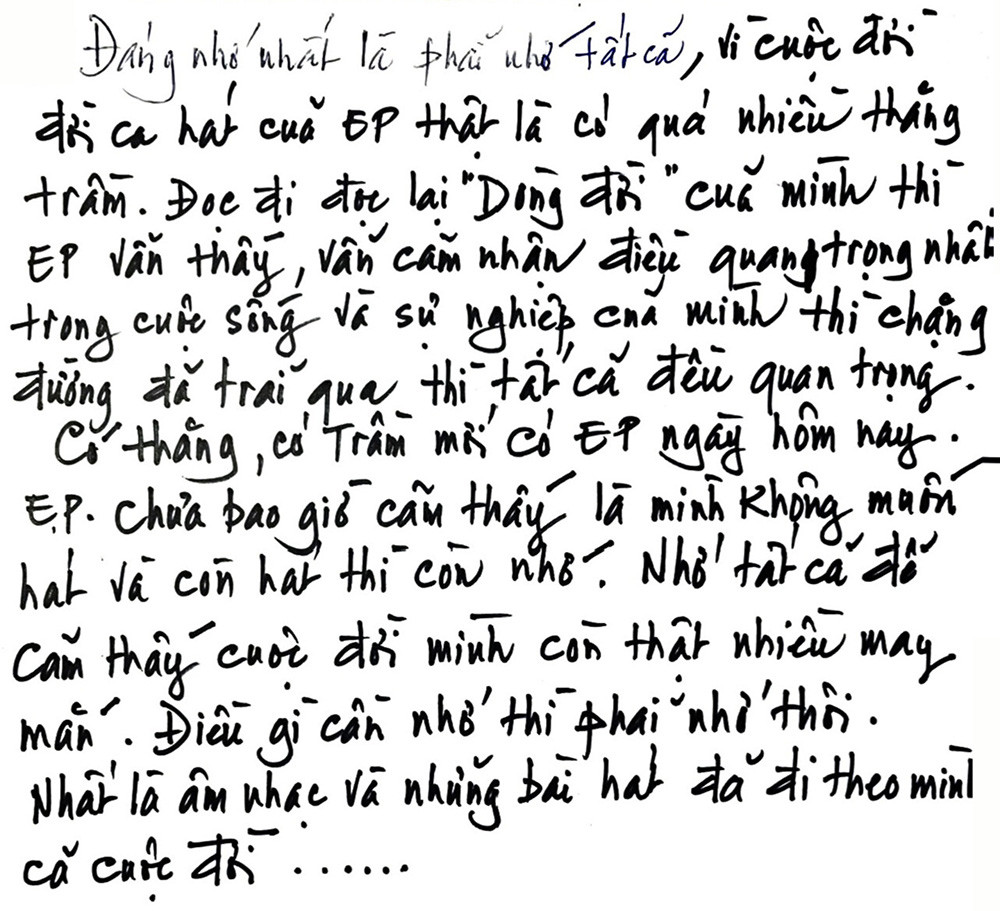 Đáng nhớ nhất là phải nhớ tất cả, vì cuộc đời
đời ca hát của EP thật là có quá nhiều thăng
trầm. Đọc đi đọc lại "Dòng đời" của mình thì
EP vẫn thấy, vẫn cảm nhận điều quang trọng nhất
trong cuộc sống và sự nghiệp của mình thì chặng
đường đã trải qua thì tất cả đều quan trọng.
Có thăng, có Trầm mới có EP ngày hôm nay.
E.P. chưa bao giờ cảm thấy là mình không muốn
hát và còn hát thì còn nhớ. Nhớ tất cả để
cảm thấy cuộc đời mình còn thật nhiều may
mắn. Điều gì cần nhớ thì phải nhớ thôi.
Nhất là âm nhạc và những bài hát đã đi theo mình
cả cuộc đời ......